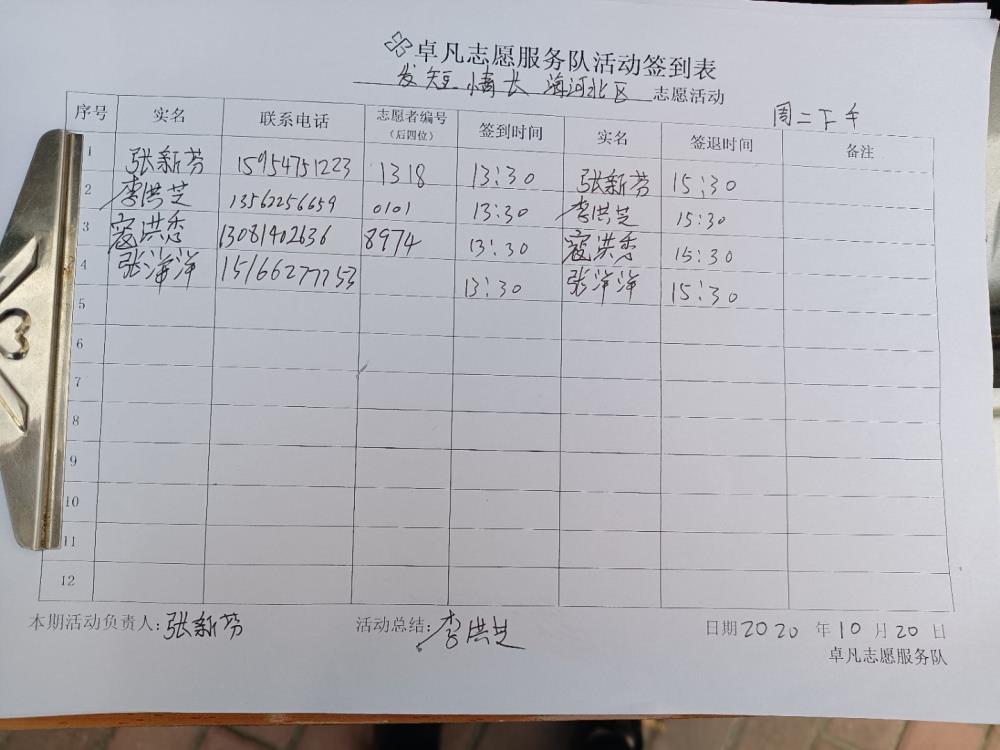 卓凡志愿服务队活动签到表
发短情长 海河北区 志愿活动
周二下午
序号 实名 联系电话 志愿者编号（后四位） 签到时间 实名 签退时间 备注
1 张新芬 15954751223 1318 13:30 张新芬 15:30
2 李洪芝 13562256659 0101 13:30 李洪芝 15:30
3 寇洪秀 13081402636 8974 13:30 寇洪秀 15:30
4 张海洋 15166277753 13:30 张洋洋 15:30
5
6
7
8
9
10
11
12
本期活动负责人:张新芬 活动总结:李洪芝 日期2020年10月20日
卓凡志愿服务队